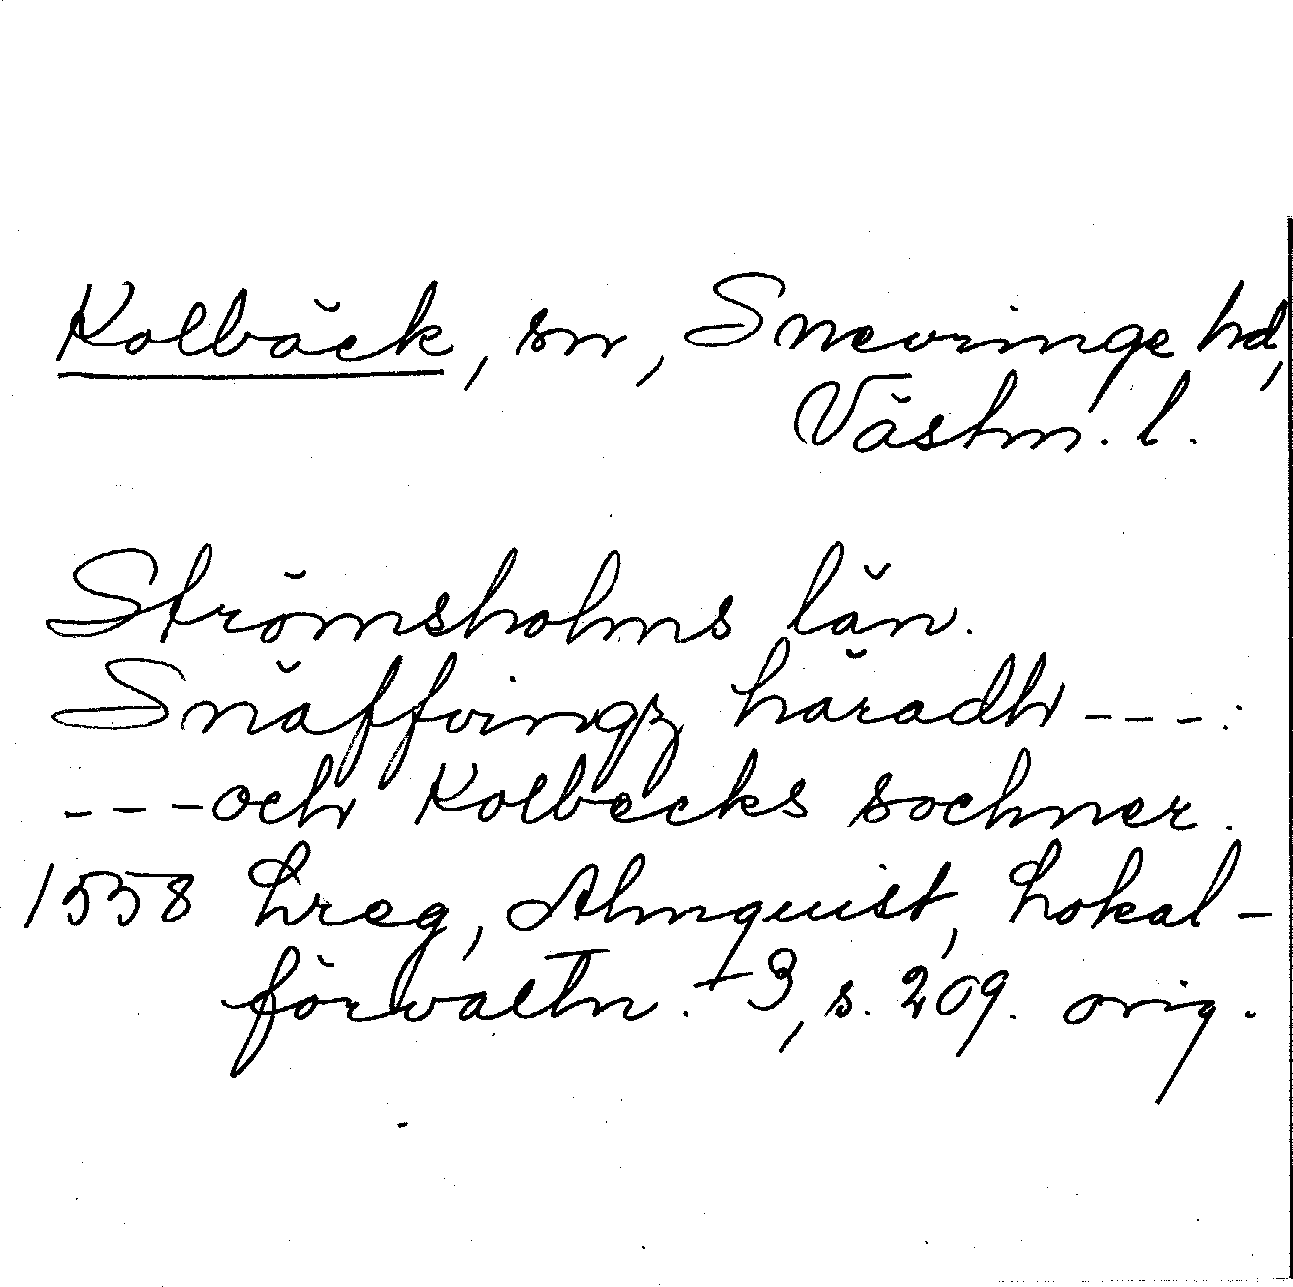 Kolbäck, sn, Snevringe hd,
Västm. l.
Strömsholms län.
Snäffvingz häradh ---:
---och Kolbecks sochner.
1558 Lreg, Almquist, Lokal-
förvaltn. +3, s. 209. orig.